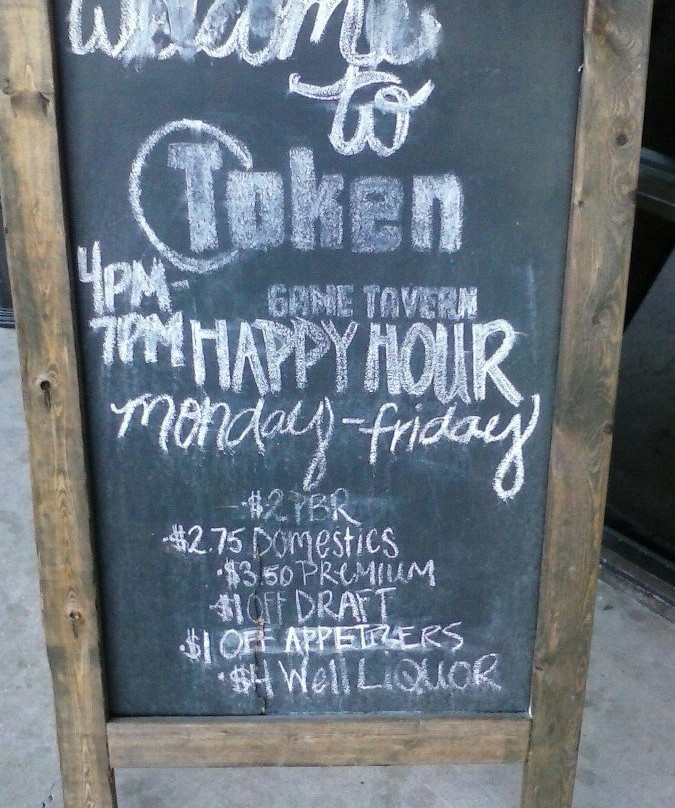 Welcome
to
Token
GAME TAVERN
4PM-
7PM HAPPY HOUR
monday-friday
-$2 PBR
-$2.75 Domestics
-$3.50 PREMIUM
-$1 OFF DRAFT
-$1 OFF APPETIZERS
-$4 Well LIQUOR